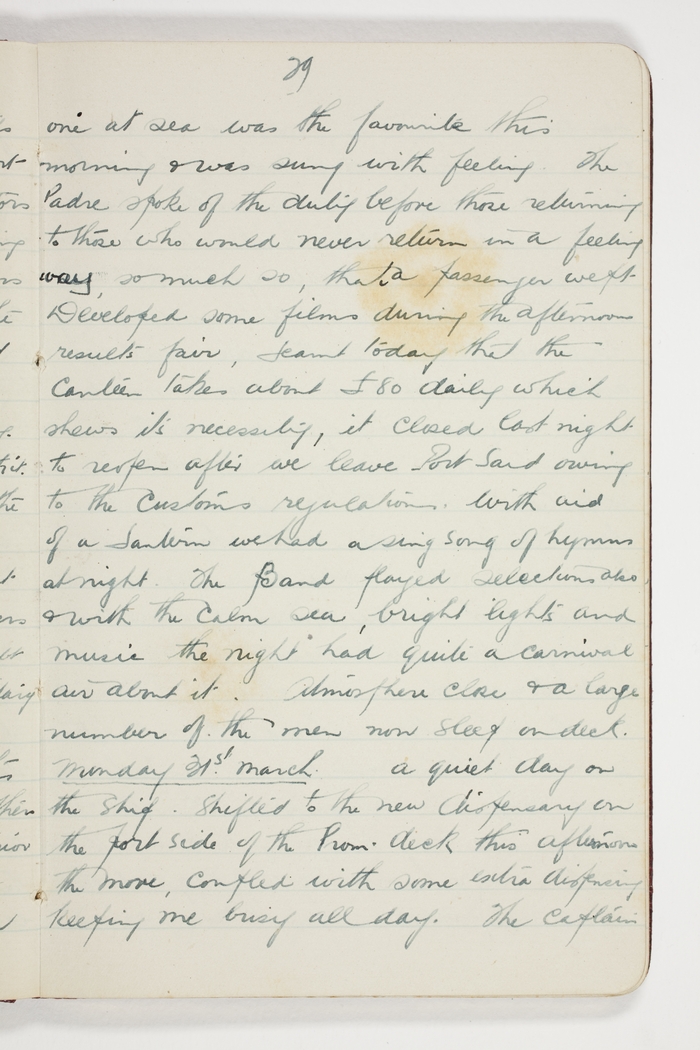 29
one at sea was the favourite this
morning & was sung with feeling. The
Padre spoke of the duty before those returning
to those who would never return in a feeling
way, so much so, that a passenger wept.
Developed some films during the afternoon
results fair, learnt today that the
Canteen takes about £80 daily which
shews its necessity, it closed last night
to reopen after we leave Port Said owing
to the Customs regulations. With aid
of a Lantern we had a sing song of hymns
at night. The Band played selections also,
& with the calm sea, bright lights and
music the night had quite a carnival
air about it. Atmosphere close & a large
number of the men now sleep on deck.
Monday 31st March. a quiet day on
the Ship. Shifted to the new dispensary on
the port side of the Prom. deck this afternoon
the move, coupled with some extra dispensing
keeping me busy all day. The Captain